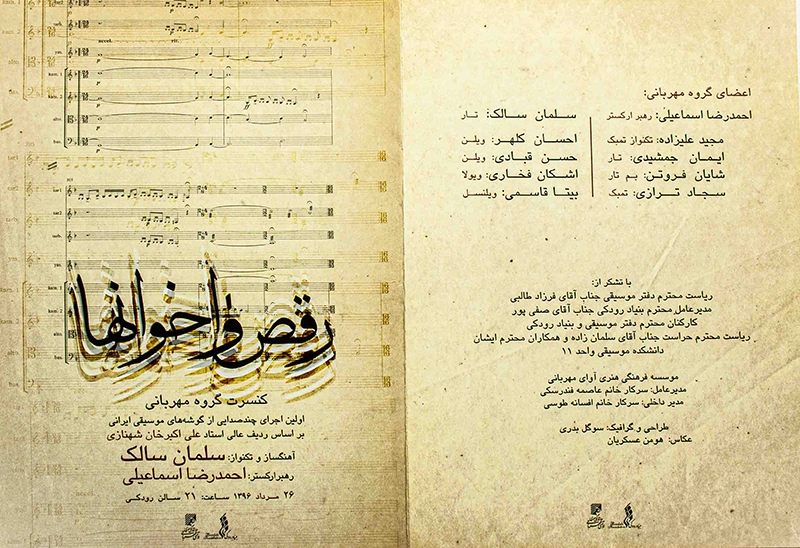 رقص واخوانها
کنسرت گروه مهربانی
اولین اجرای چندصدایی از گوشه‌های موسیقی ایرانی
بر اساس ردیف عالی استاد علی اکبرخان شهنازی
آهنگساز و تکنواز: سلمان سالک
رهبرارکستر: احمدرضا اسماعیلی
۲۶ مرداد ۱۳۹۶ ساعت: ۲۱ سالن رودکی
اعضای گروه مهربانی:
احمدرضا اسماعیلی: رهبر ارکستر
مجید علیزاده: تکنواز تمبک
ایمان جمشیدی: تار
شایان فروتن: بم تار
سجاد ترازی: تمبک
سلمان سالک: تار
احسان کلهر: ویلن
حسن قبادی: ویلن
اشکان فخاری: ویولا
بیتا قاسمی: ویلنسل
با تشکر از:
ریاست محترم دفتر موسیقی جناب آقای فرزاد طالبی
مدیرعامل محترم بنیاد رودکی جناب آقای صفی پور
کارکنان محترم دفتر موسیقی و بنیاد رودکی
ریاست محترم حراست جناب آقای سلمان زاده و همکاران محترم ایشان
دانشکده موسیقی واحد ۱۱
موسسه فرهنگی هنری آوای مهربانی
مدیرعامل: سرکار خانم عاصمه فندرسکی
مدیر داخلی: سرکار خانم افسانه طوسی
طراحی و گرافیک: سوگل بدری
عکاس: هومن عسکریان